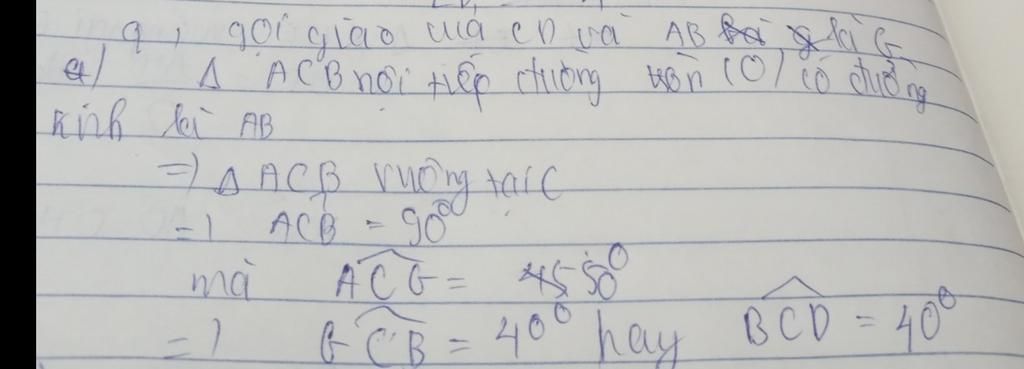 a, gọi giao của CD và AB là G
a) Δ ACB nội tiếp đường tròn (O) có đường
kính là AB
=> Δ ACB vuông tại C
=> ACB = 90°
mà ACG = 50°
=> GCB = 40° hay BCD = 40°